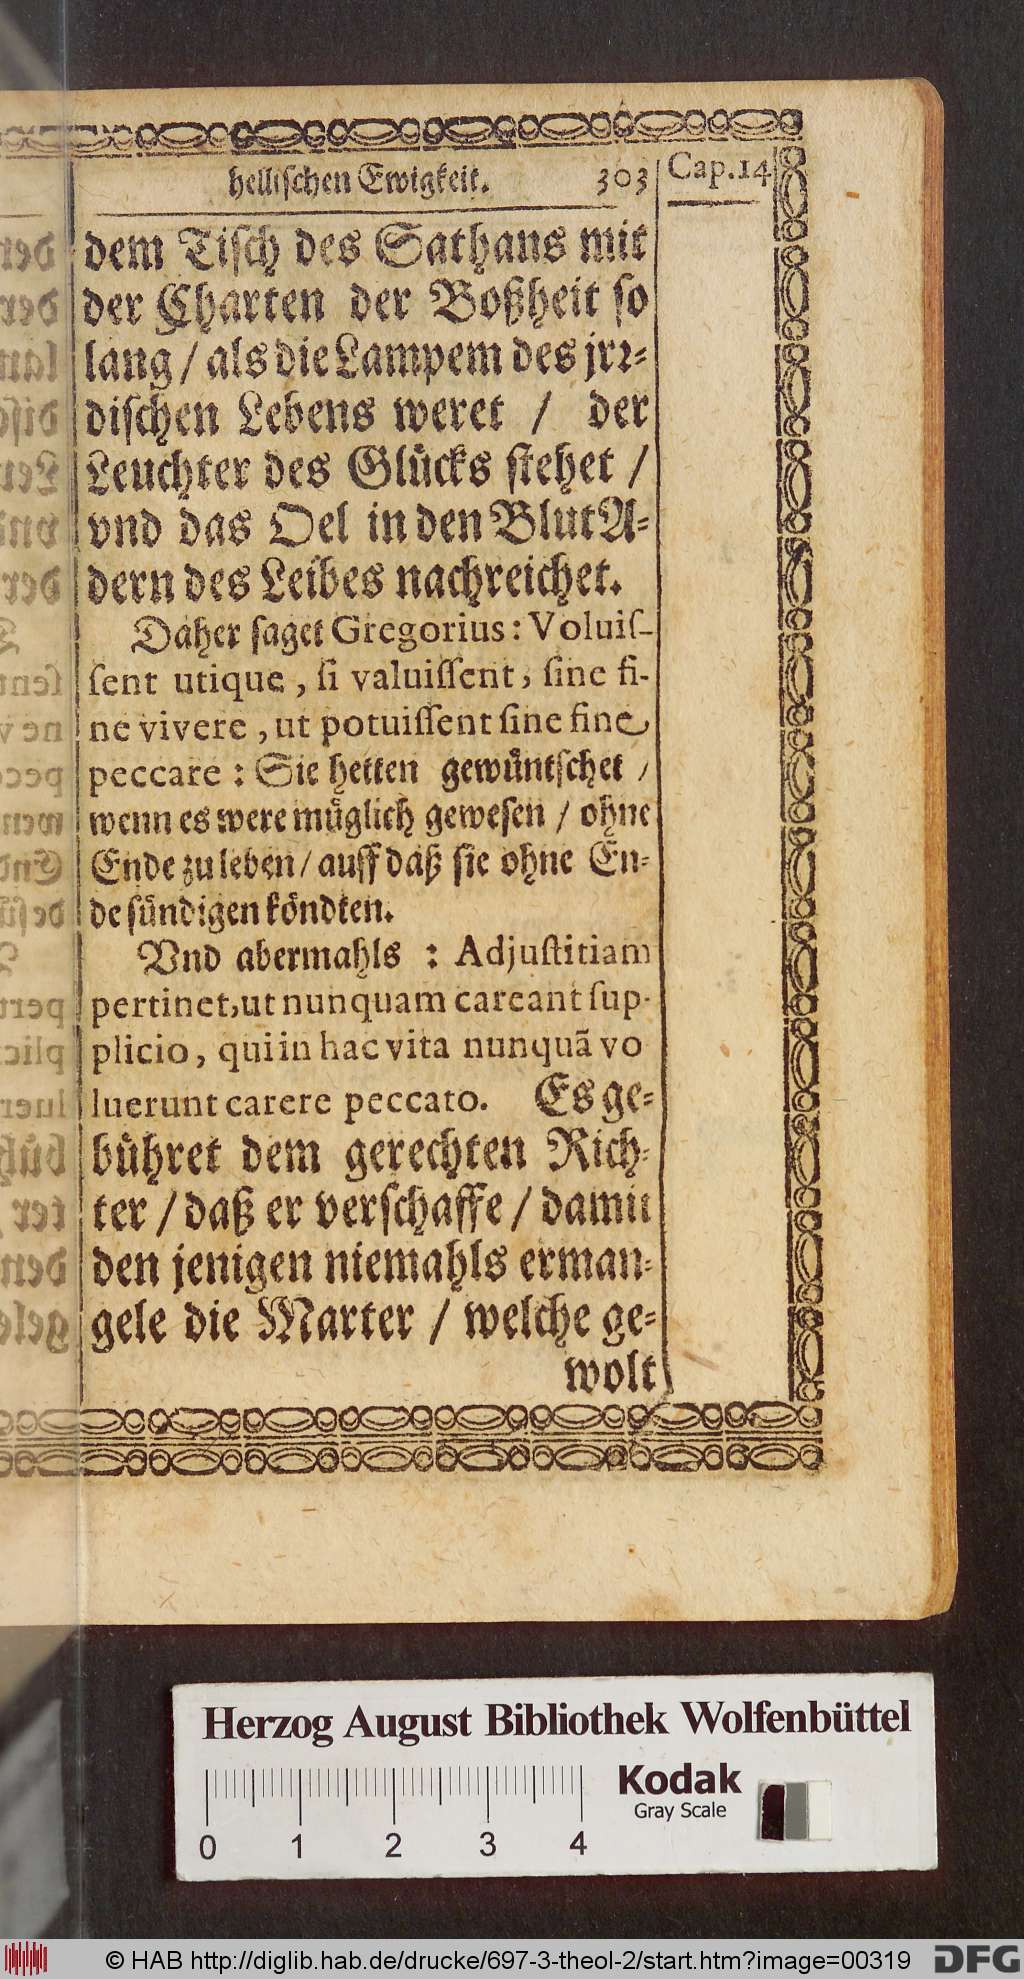 hellischen Ewigkeit. 303 Cap.14
dem Tisch des Sathans mit
der Charten der Boßheit so
lang / als die Lampem des jrr-
dischen Lebens weret / der
Leuchter des Glücks stehet /
vnd das Oel in den BlutA-
dern des Leibes nachreichet.
Daher saget Gregorius: Voluiſ-
ſent utique, ſi valuiſſent, ſine fi-
ne vivere, ut potuiſſent ſine fine
peccare: Sie hetten gewüntschet /
wenn es were müglich gewesen / ohne
Ende zu leben / auff daß sie ohne En-
de sündigen köndten.
Vnd abermahls : Adjuſtitiam
pertinet, ut nunquam careant ſup-
plicio, qui in hac vita nunquã vo
luerunt carere peccato. Es ge-
bühret dem gerechten Rich-
ter / daß er verschaffe / damit
den jenigen niemahls erman-
gele die Marter / welche ge-
wolt
Herzog August Bibliothek Wolfenbüttel
Kodak
Gray Scale
0 1 2 3 4
© HAB http://diglib.hab.de/drucke/697-3-theol-2/start.htm?image=00319 DFG